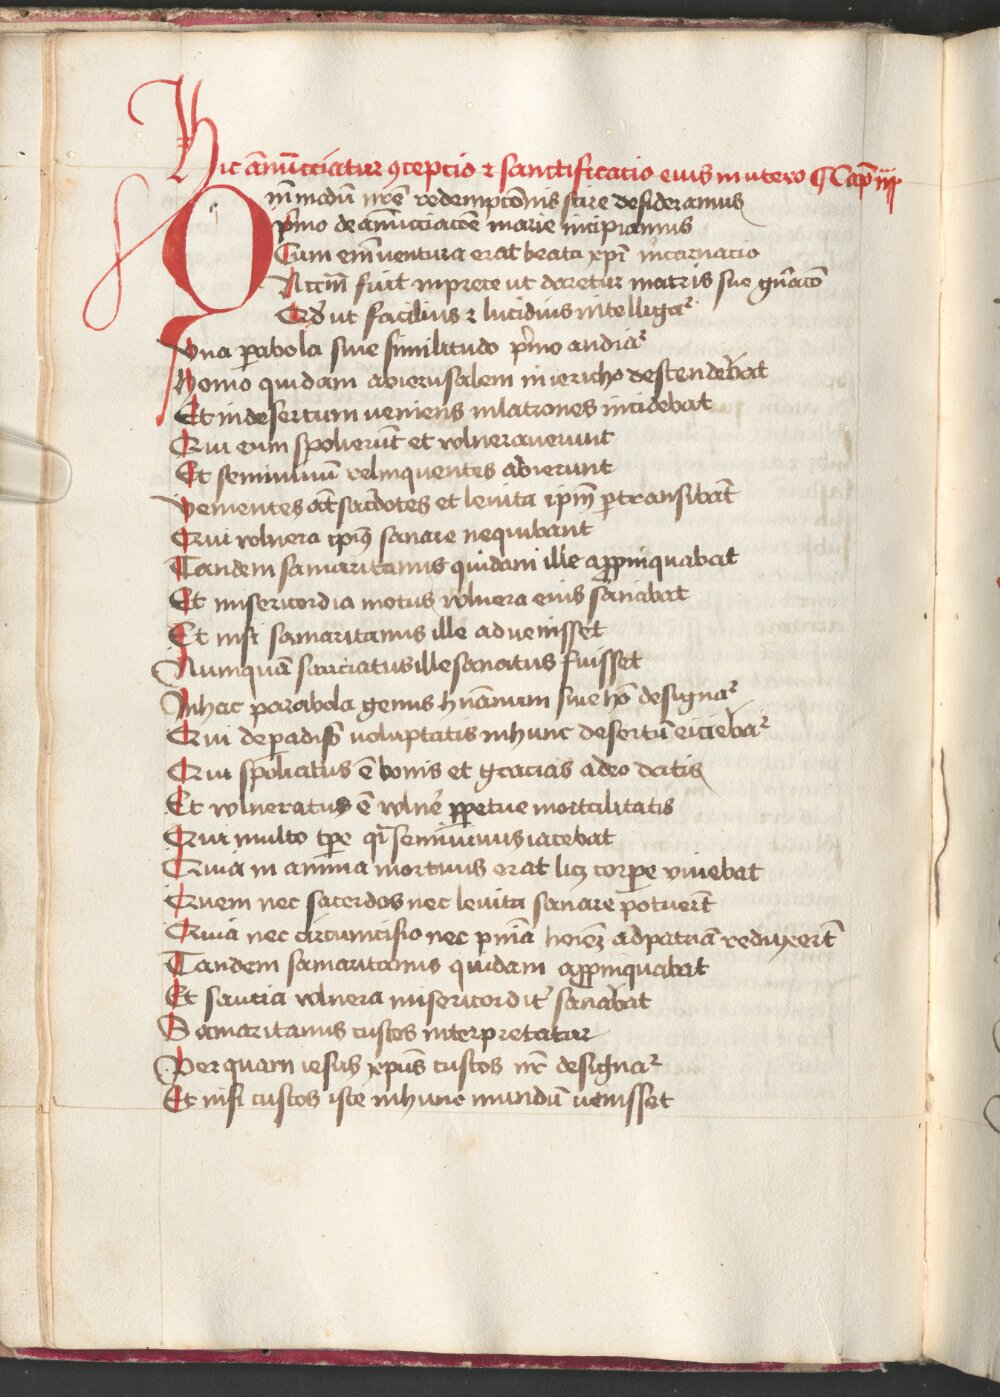 Hic an̄ūcciatur ꝯcepcio ⁊ sanctificacio eius in utero Cap̄ iij
Qm̄ modū nr̄e redempcōnis scire desideramus
p̄mo de an̄ūcciacōe marie incipiamus
Cum em̄ ventura erat beata xp̄i incarnacio
Necm̄ fuit
Et vt facilius ⁊ lucidius intelligaꝛ
Vna ꝑabola siue similitudo p̄mo audiaꝛ
Homo quidam ab iherusalem in iericho descendebat
Et in desertum ueniens in latrones incidebat
Qui eum spolierūt et vulnerauerunt
Et seminiuū relinquentes abierunt
Venientes aūt sac̄dotes et leuita ip̄m ꝑtransibāt
Qui vulnera ip̄iꝰ sanare nequibant
Tandem samaritanus quidam ille aꝓpinquabat
Et misericordia motus vulnera eius sanabat
Et nisi samaritanus ille aduenisset
Numquā sauciatus ille sanatus fuisset
In hac parabola genus hūanum siue hō designaꝛ
Qui de paradiso voluptatis in hunc desertū eiciebaꝛ
Qui spoliatus ē bonis et gracias a deo datis
Et vulneratus ē vulnē ꝑpetue mortalitatis
Qui multo tꝑe q̄si seminiuus iacebat
Quia in anima mortuus erat licꝫ corpe viuebat
Quem nec sacerdos nec leuita sanare potuer̄t
Quia nec circumcisio nec ad patriā reduxer̄t
Tandem samaritanus quidam aꝓpinquabat
Et saucia vulnera misericordit᷑ sanabat
Samaritanus custos interpretatur
Per quam iesus xp̄us custos nr̄ designaꝛ
Et nisi custos iste in hunc mundū venisset